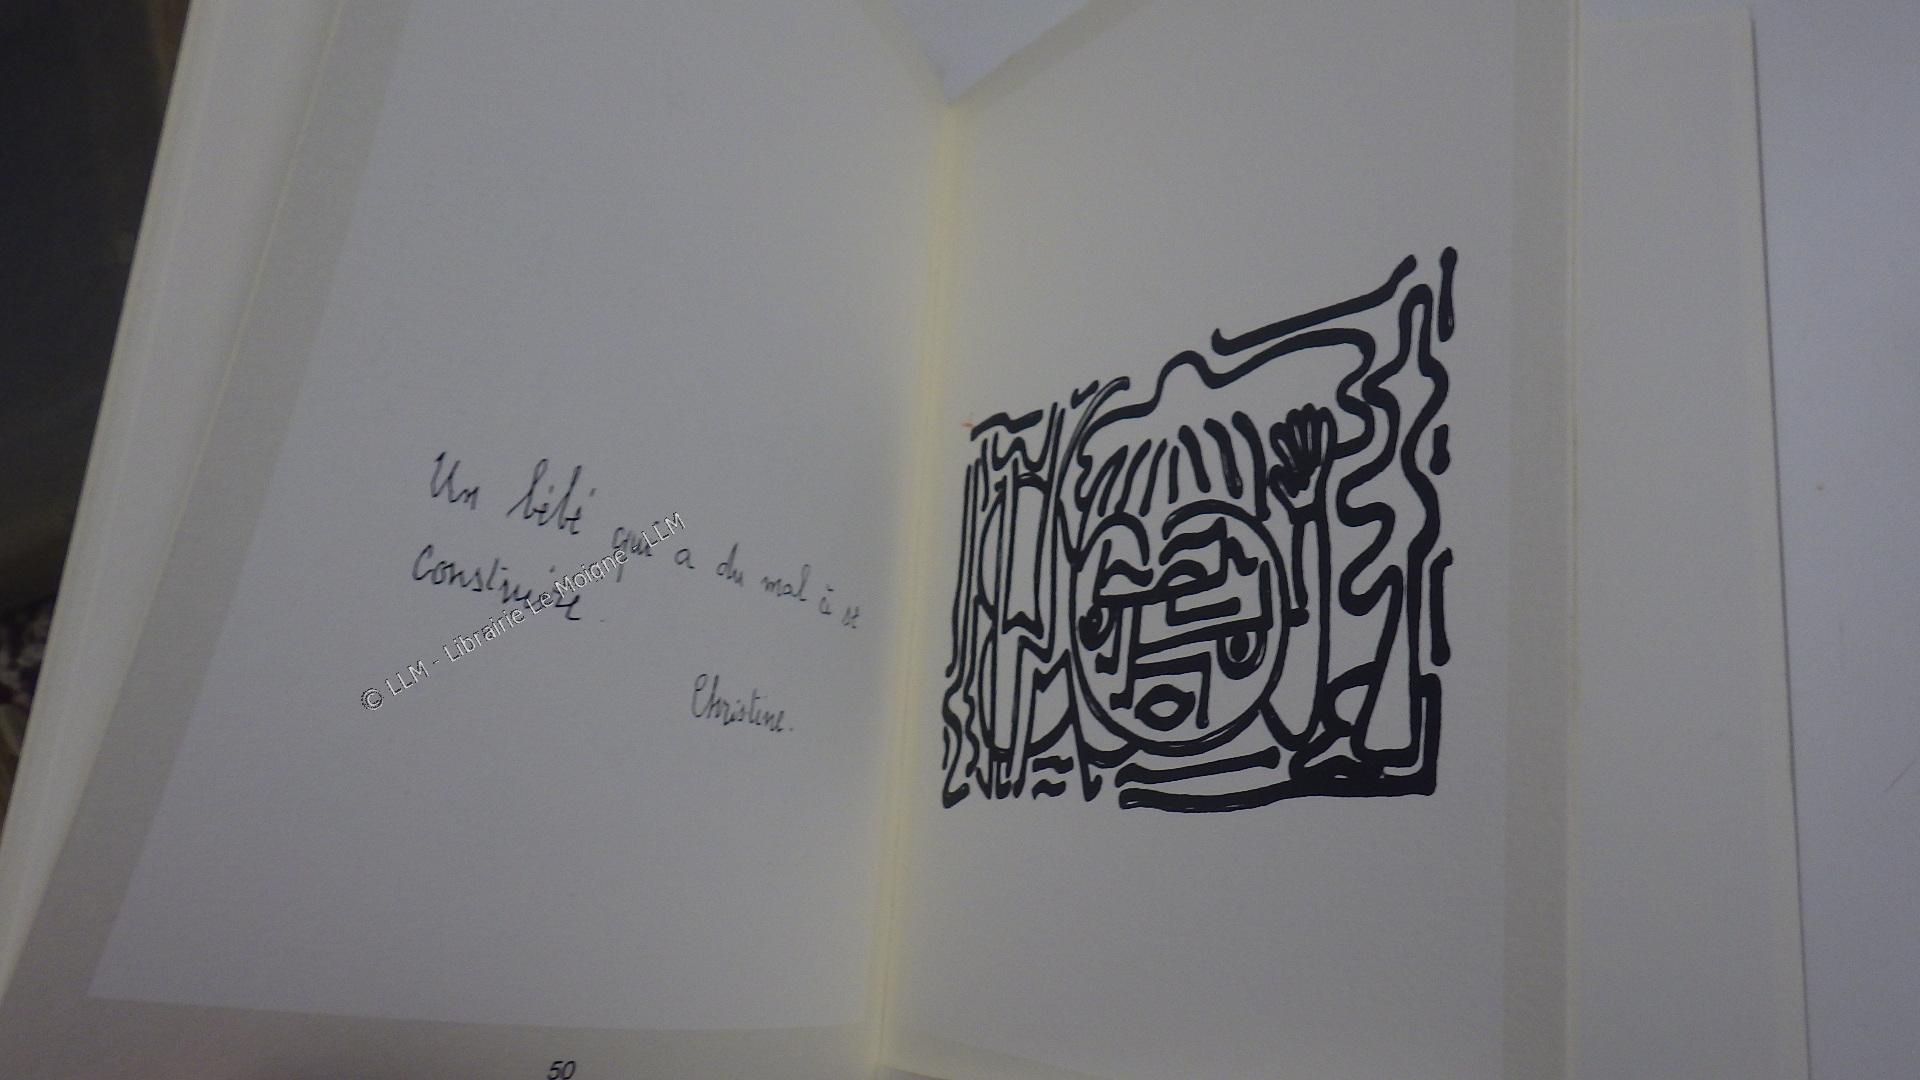 Un bébé qui a du mal à se
Construire.
Christine.
© LLM - Librairie Le Moigne - LLM
50